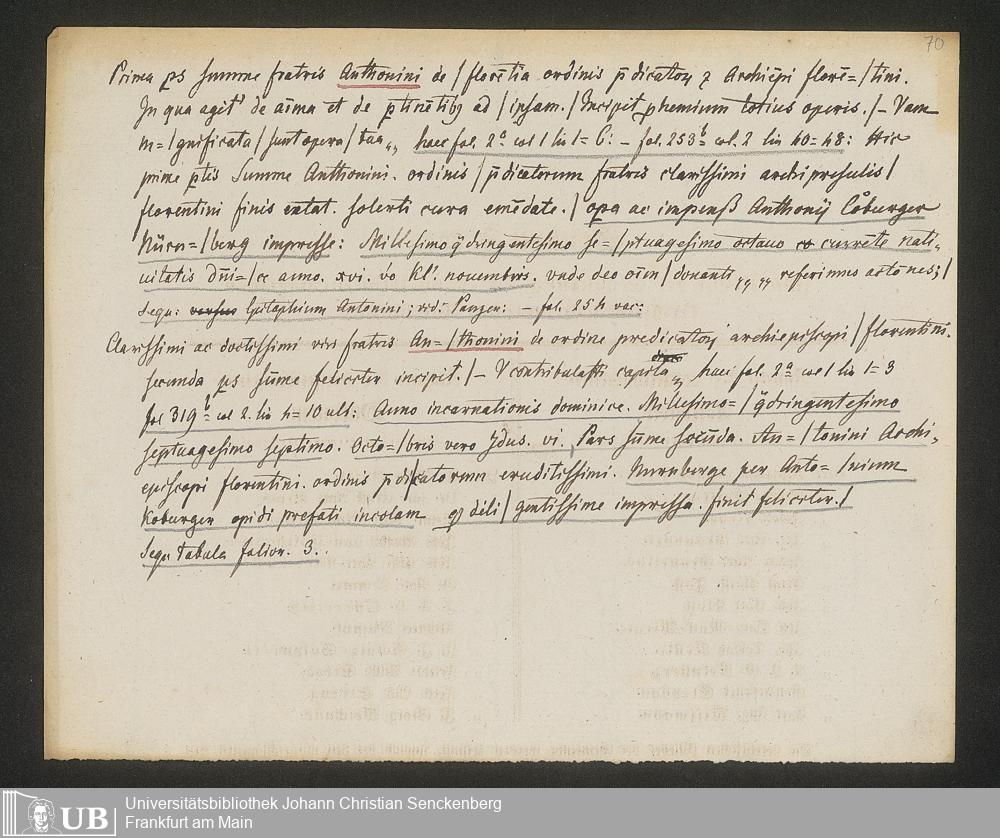 70
Prima ps summe fratris Anthonini de / florētia ordinis p̄dicatoꝝ ⁊ Archiēpi florē= / tini.
In qua agit' de aīma et de ꝑtinētibꝫ ad / ipsam. / Incipit phemium totius operis. / – Vam
m= / gnificata / sunt opera / tua „ haec fol. 2a col 1 lin 1= 6: – fol. 253b col. 2 lin 40=48: Hic
prime ꝑtis Summe Anthonini. ordinis / p̄dicatorum fratris clarissimi archipresulis /
florentini finis extat. solerti cura emēdate. / opa ac impensß Anthonij Coͤburger
Nürn= / berg impresse: Millesimo q̈dringentesimo se= / ptuagesimo octauo currēte nati„
uitatis Dn̄i= / ce anno. xvi. v̇o kl'. nouembris. vnde deo oīm / donanti „ „ referimus actōnes; /
Sequ: Epitaphium Antonini; vid: Panzer: – fol. 254 vac:
Clarissimi ac doctissimi viri fratris An= / thonini de ordine predicatoꝝ archiepiscopi / florentini.
secunda ps sūme feliciter incipit. / – V contribulasti capita „ haec fol. 2a col 1 lin 1=3
fol 319b col 2. lin 4=10 ult: Anno incarnationis dominice. Millesimo= / q̈dringentesimo
septuagesimo septimo. Octo= / bris vero Jdus. vi. Pars sūme secūda. An= / tonini Archi„
episcopi florentini. ordinis p̄di/catorum eruditissimi. Nurnberge per Anto= / nium
Koburger opidi prefati incolam ꝙ dili / gentissime impressa. finit feliciter. /
Sequ: tabula folior. 3.
UB
Universitätsbibliothek Johann Christian Senckenberg
Frankfurt am Main